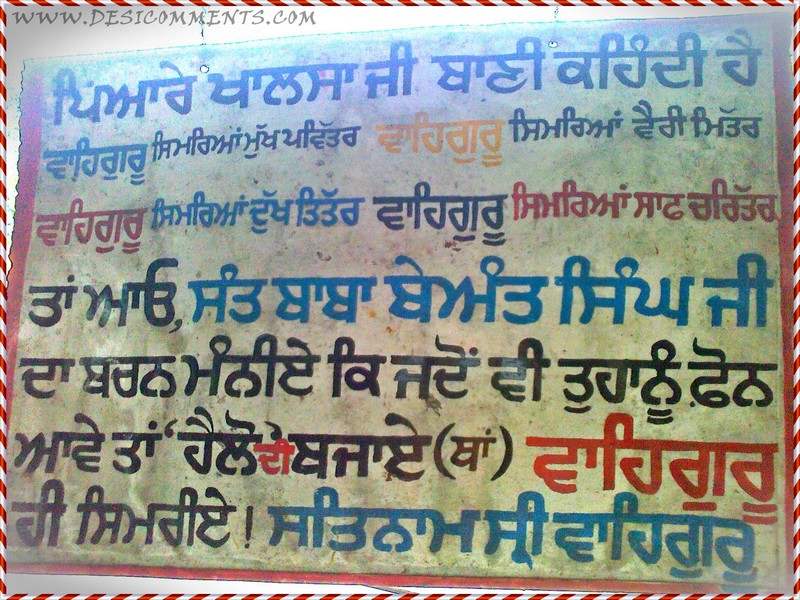 WWW.DESICOMMENTS.COM
ਪਿਆਰੇ ਖਾਲਸਾ ਜੀ ਬਾਣੀ ਕਹਿੰਦੀ ਹੈ
ਵਾਹਿਗੁਰੂ ਸਿਮਰਿਆਂ ਮੁੱਖ ਪਵਿੱਤਰ ਵਾਹਿਗੁਰੂ ਸਿਮਰਿਆਂ ਵੈਰੀ ਮਿੱਤਰ
ਵਾਹਿਗੁਰੂ ਸਿਮਰਿਆਂ ਦੁੱਖ ਤਿੱਤਰ ਵਾਹਿਗੁਰੂ ਸਿਮਰਿਆਂ ਸਾਫ ਚਰਿੱਤਰ
ਤਾਂ ਆਓ, ਸੰਤ ਬਾਬਾ ਬੇਅੰਤ ਸਿੰਘ ਜੀ
ਦਾ ਬਚਨ ਮੰਨੀਏ ਕਿ ਜਦੋਂ ਵੀ ਤੁਹਾਨੂੰ ਫ਼ੋਨ
ਆਵੇ ਤਾਂ ‘ਹੈਲੋ’ ਦੀ ਬਜਾਏ (ਥਾਂ) ਵਾਹਿਗੁਰੂ
ਹੀ ਸਿਮਰੀਏ! ਸਤਿਨਾਮ ਸ੍ਰੀ ਵਾਹਿਗੁਰੂ